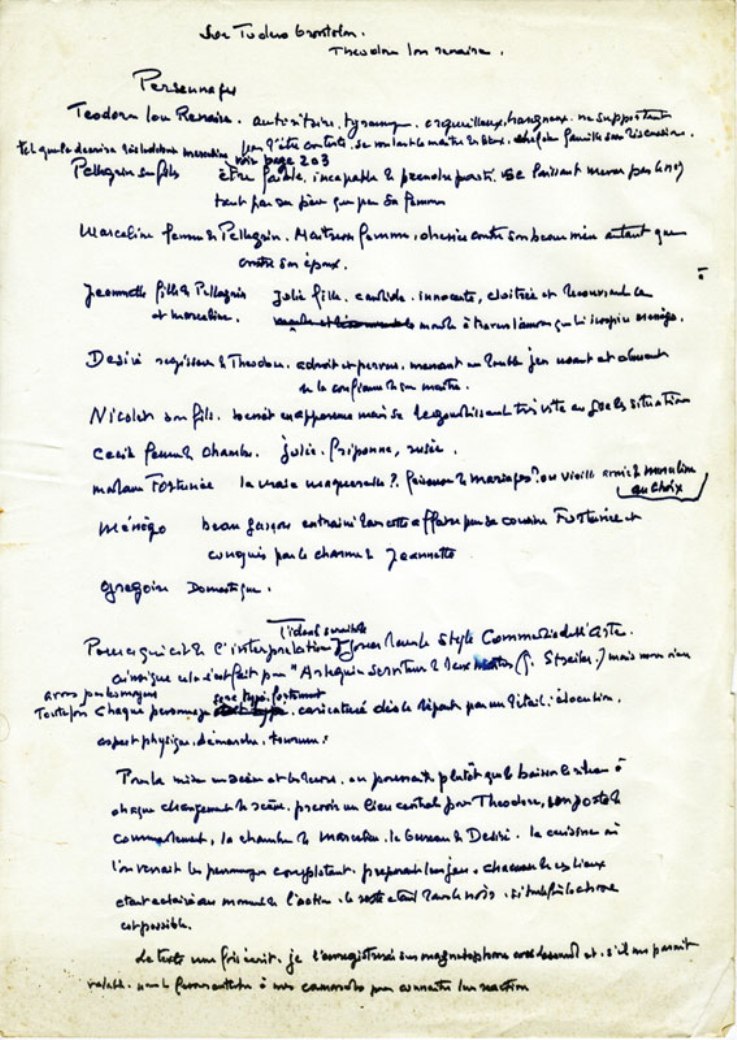 Sor Todero brontolon.
Theodore lou renaire.
Personnages
Teodore lou Renaire. autoritaire, tyrannique, orgueilleux, hargneux. ne supportant
pas d'être contesté. se voulant le maître
voir page 203
Pellegrin son fils être faible, incapable de prendre parti. se laissant mener par le nez
tant par son père que par sa femme
Marceline femme de Pellegrin. Maitresse femme, dressée contre son beau père autant que
contre son époux.
Jeannette fille de Pellegrin Jolie fille. candide. innocente, cloitrée et découvrant le
et Marceline. monde à travers l'amour que lui inspire Ménégo.
Desiré regisseur de Theodore. adroit et pervers, menant un double jeu usant et abusant
de la confiance de son maître.
Nicolet son fils. benêt en apparence mais se dégourdissant très vite
Cecile femme de chambre. jolie. friponne, rusée.
madame Fortunée la vraie maquerelle?. faiseuse de mariages? ou vieille amie de Marceline
au choix
Ménégo beau garçon entrainé dans cette affaire par sa cousine Fortunée et
conquis par le charme de Jeannette
Gregoire Domestique.
l'idéal serait de
Pour ce qui est de l'interpretation jouer dans le style Commedia dell'Arte.
ainsi que cela s'est fait pour "Arlequin serviteur de deux maîtres" (G. Strehler.) mais nous n'en
avons pas les moyens
sera typé. fortement
Toutefois chaque personnage caricaturé dès le départ par un détail: élocution,
aspect physique. démarche. tournure.
Pour la mise en scène et les decors. on pourrait plutôt que de baisser le rideau à
chaque changement de scène. prevoir un lieu central pour Theodore, son poste de
commandement, la chambre de Marceline. le bureau de Desiré. la cuisine où
l'on verrait les personnages complotant. preparant leur jeu. chacun de ces lieux
étant éclairé au moment de l'action. le reste étant dans le noir. si
est possible.
Le texte une fois écrit. je l'enregistrerai sur magnetophone et. s'il me parait
valable. à mes camarades pour connaitre leur reaction